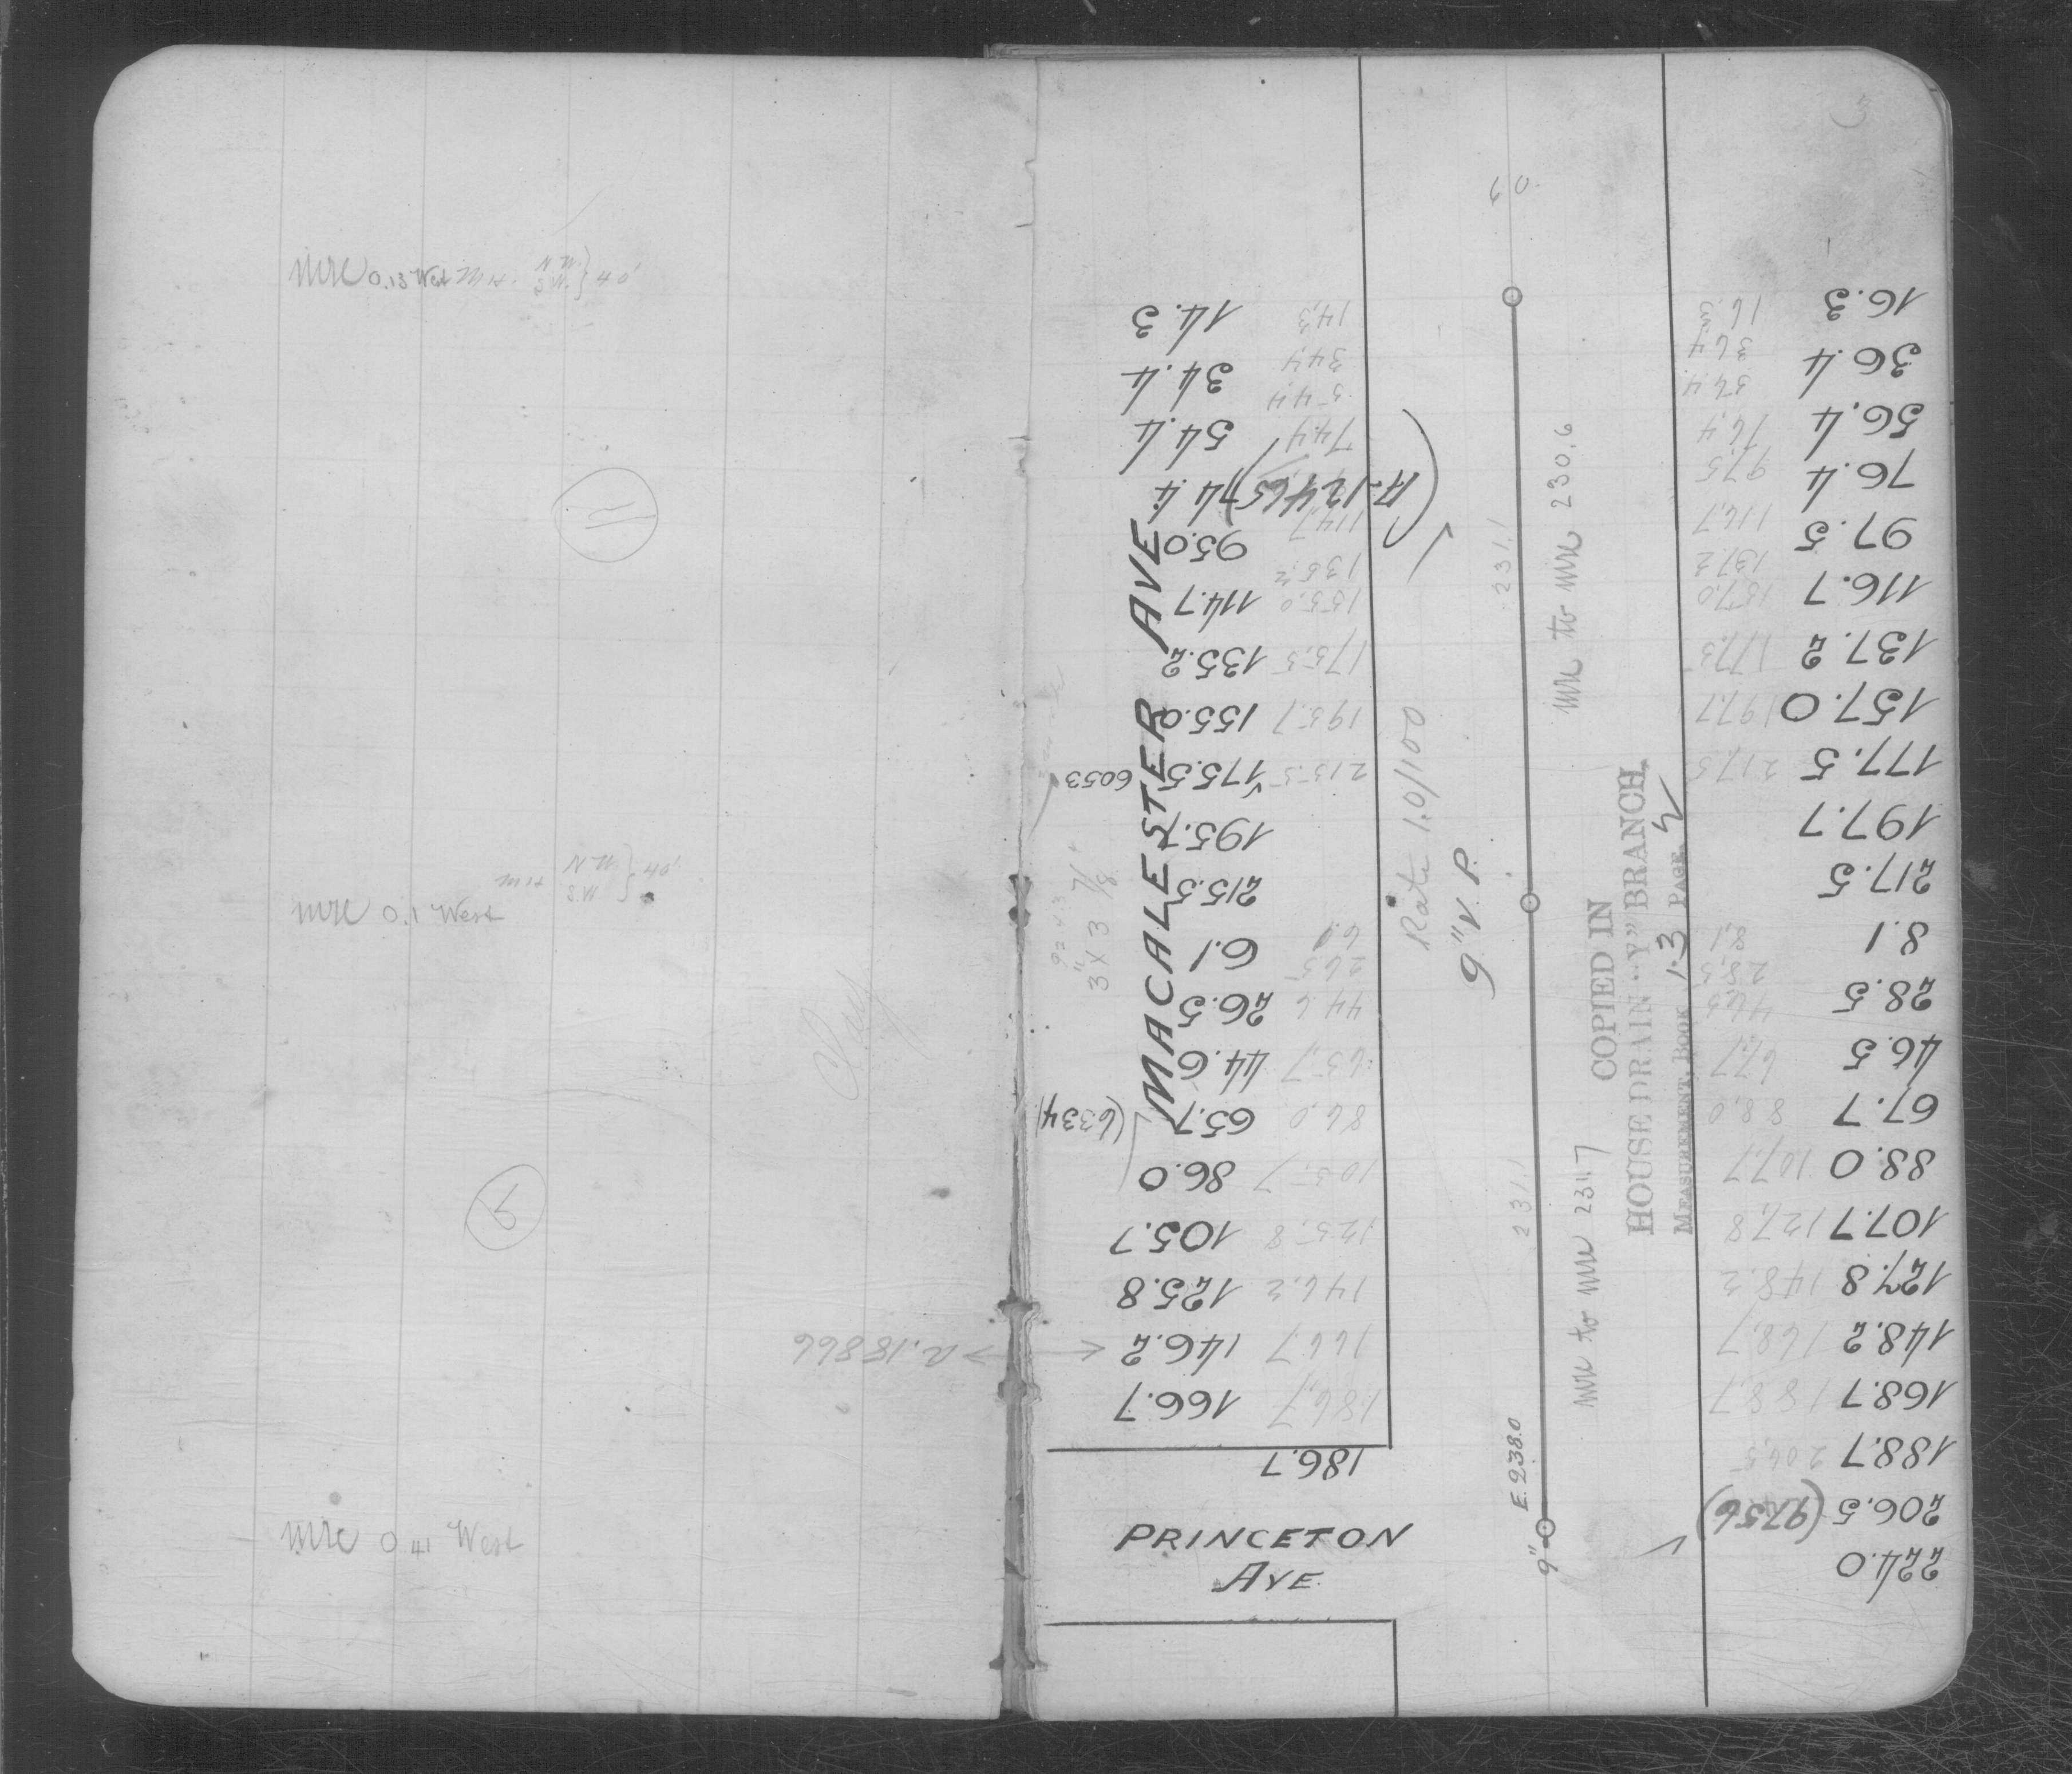 0.13 West
0.1 West
0.41 West
11
9
a. 18866
MACALESTER AVE
14.3
34.4
54.4
74.4
(A-12465)
95.0
114.7
135.2
155.0
175.5
6053
195.7
215.5
6.1
26.5
44.6
65.7
(6334)
86.0
105.7
125.8
146.2
166.7
186.7
3" X 3 7/8"
14.3
34.4
54.4
74.4
114.7
135.2
155.0
175.5
195.7
215.5
6.1
26.5
44.6
65.7
86.0
105.7
125.8
146.2
166.7
186.7
PRINCETON
AVE.
Rate 1.0/100
9" V. P.
231.1
231.1
E.238.0
9"
to 230.6
to 231.7
COPIED IN
HOUSE DRAIN "Y" BRANCH,
MEASUREMENT, BOOK 13 PAGE 2
16.3
36.4
56.4
76.4
97.5
116.7
137.2
157.0
177.5
197.7
217.5
8.1
28.5
46.5
67.7
88.0
107.7
127.8
148.2
168.7
188.7
206.5 (9756)
224.0
16.3
36.4
76.4
97.5
116.7
137.2
157.0
177.5
197.7
217.5
8.1
28.5
46.5
67.7
88.0
107.7
127.8
148.2
168.7
188.7
206.5